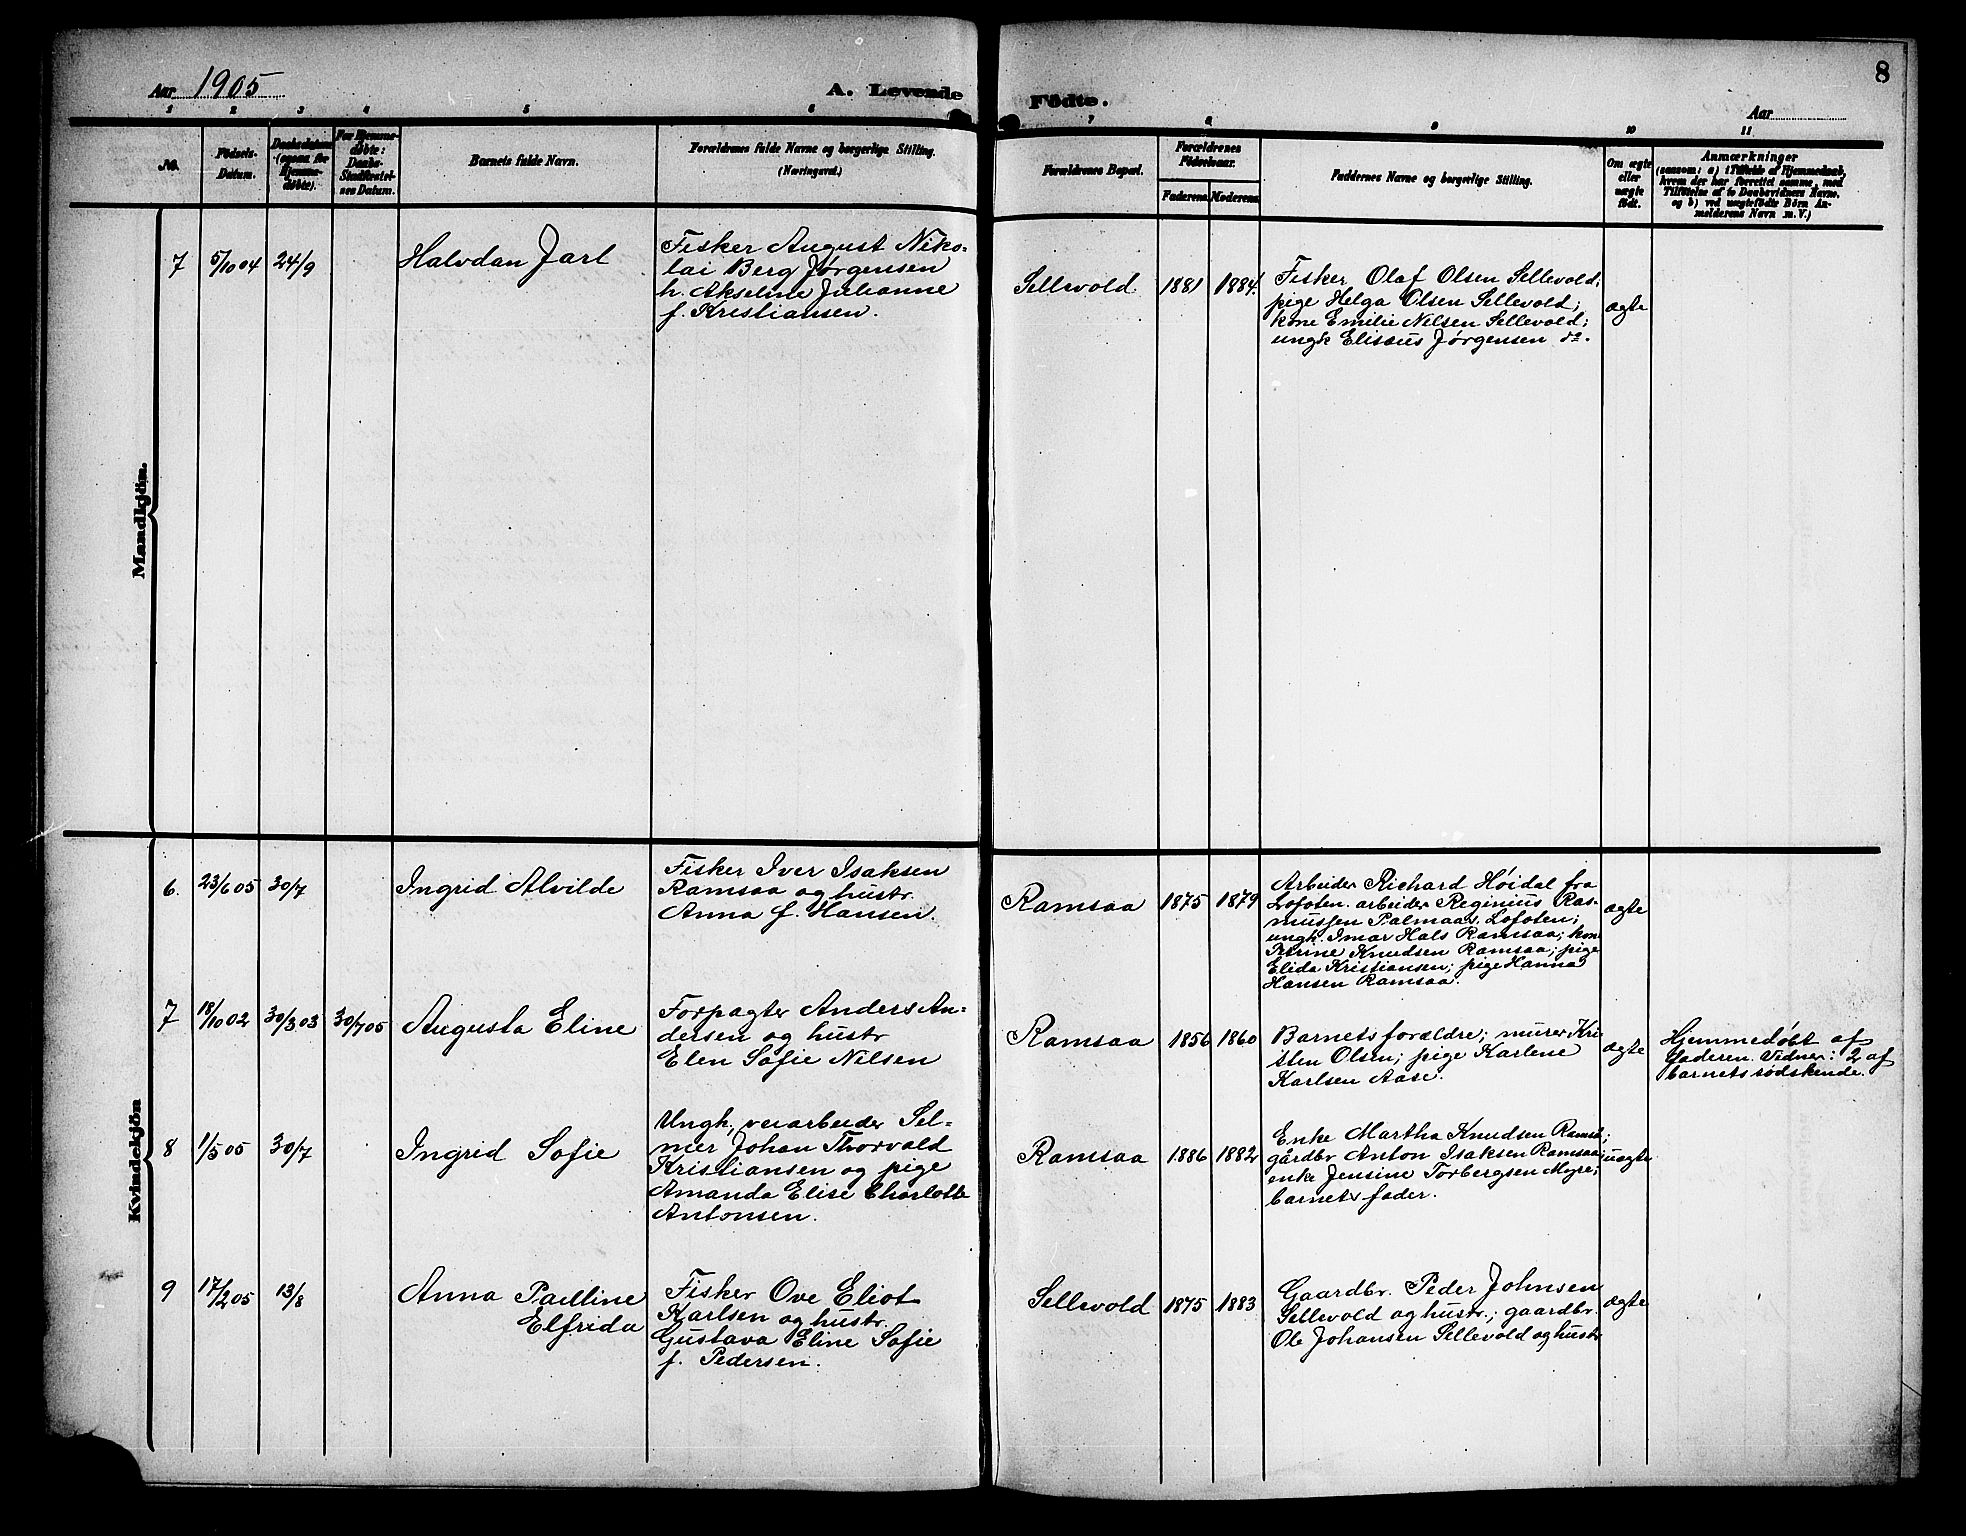 8
Aar 1905
A. Levende Födte.
Aar
1 2 3 4 5 6 7 8 9 10 11
No.
Födsels-
Datum.
Daabsdatum
(ogsaa for
Hjemme-
døbte).
For Hjemme-
døbte:
Daabs-
Stadfæstel-
sens Datum.
Barnets fulde Navn.
Forældrenes fulde Navne og borgerlige Stilling.
(Næringsvei.)
Forældrenes Bopæl.
Forældrenes
Födselsaar.
Faderens. Moderens.
Faddernes Navne og borgerlige Stilling.
Om ægte
eller
uægte
født.
Anmærkninger
(saasom: a) i Tilfælde af Hjemmedaab,
hvem der har forrettet samme, med
Tilföielse af to Daabsvidners Navne.
og b) ved uægtefödte Börn An-
melderens Navn m. V.)
Mandkjön.
7 5/10 04 24/9
Halvdan Jarl
Fisker August Niko-
lai Berg Jørgensen
h. Akseline Julianne
f. Kristiansen.
Sellevold. 1881 1884.
Fisker Olaf Olsen Sellevold;
pige Helga Olsen Sellevold;
kone Emilie Nilsen Sellevold;
ungk Elisæus Jørgensen do.
ægte
Kvindekjön
6. 23/6 05 30/7
Ingrid Alvilde
Fisker Iver Isaksen
Ramsaa og hustr.
Anna f. Hansen.
Ramsaa 1875 1879
Arbeider Richard Høidal fra
Lofoten. arbeider Reginius Ras-
mussen Palmaas, Lofoten;
ungk. Imar Hals Ramsaa; kon
Petrine Knudsen Ramsaa; pige
Elida Kristiansen; pige Hanna
Hansen Ramsaa.
ægte
7 18/10 02 30/3 03 30/7 05
Augusta Eline
Forpagter Anders An-
dersen og hustr
Elen Sofie Nilsen
Ramsaa 1856 1860
Barnets forældre; murer Kri-
sten Olsen; pige Karlene
Karlsen Aase.
ægte
Hjemmedøbt af
faderen. Vidner: 2 af
barnets sødskende.
8 1/5 05 30/7
Ingrid Sofie
Ungk, veiarbeider Sel-
mer Johan Thorvald
Kristiansen og pige
Amanda Elise Charlotte
Antonsen.
Ramsaa 1886 1882
Enke Martha Knudsen Ramsa;
gårdbr Anton Isaksen Ramsaa;
enke Jensine Torbergsen Myre;
barnets fader.
uægte
9 17/2 05 13/8
Anna Pauline
Elfrida
Fisker Ove Eliot
Karlsen og hustr.
Gustava Eline Sofie
f. Pedersen.
Sellevold 1875 1883
Gaardbr. Peder Johnsen
Sellevold og hustr.; gaardbr.
Ole Johansen Sellevold og hustr
ægte